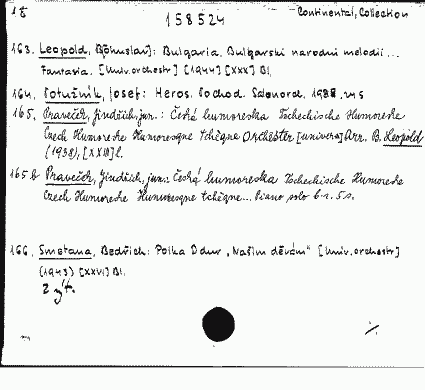 158524
Continental, Collection
163. Leopold, [Bohuslav]: Bulgaria. Bulgarski narodni melodii...
Fantasia. [Univ. orchestr] [1944] [XXX] Bl.
164. Potužník, Josef: Heros. Pochod. Salonorch.
165. Praveček, Jindřich, jun.: Česká humoreska Tschechische Humoreske
Czech Humoreske Humoresque tchèque Orchester [univers] Arr. B. Leopold
(1938), [XXIII] l.
165b Praveček, Jindřich, jun.: Česká humoreska Tschechische Humoreske
Czech Humoreske Humoresque tchèque... Piano solo b.r. 5 s.
166. Smetana, Bedřich: Polka D dur „Našim děvám" [Univ. orchestr]
(1943) [XXVI] Bl.